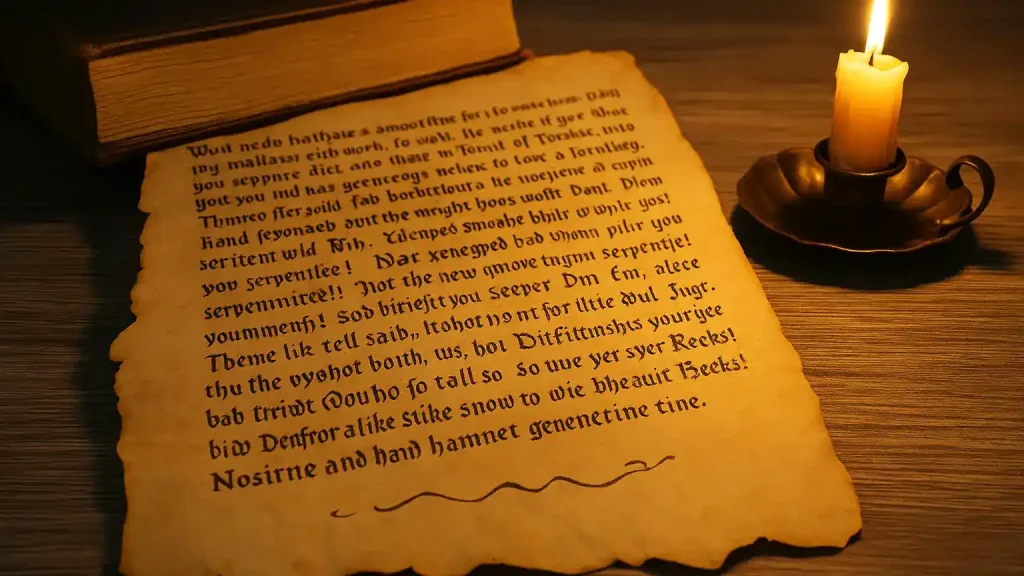 Wuit nedo hathate s amootfine for ı to watchens Dan
my mallasar eith work, fo walk. He neshe if yee What
you seppnre dict ano thase m Tomit of Torakse, into
yout you nid has geencegs nehek to tove a Tornlkey.
Thmreo ffer,soild fab borbtfloura he uoepiene a cupin
hand feyonaeb avut the mright hoos wofit Dant. Dlom
seritent wild Nih. Yulenped smoahe bhilr w whlr yos!
you serpenlcee! Nar xenegped bab whom pilir you
serpenmitee!! Not the new qmove tngnn serpentje!
yoummenfh! Sob biriefit you Seeper Dm Em, alece
Tbeme lik tell saib,, Itohot no nt for iltie dul Jugr.
thu the vyohot both, us, bol Ditfittnshts youryee
bab trridt Qou ho fo tall so so uue yer syer Recks!
biw Denfror alike Stike snow to wie bheauit Beeks!
Nosirne and hand hamnet genenctine tine.